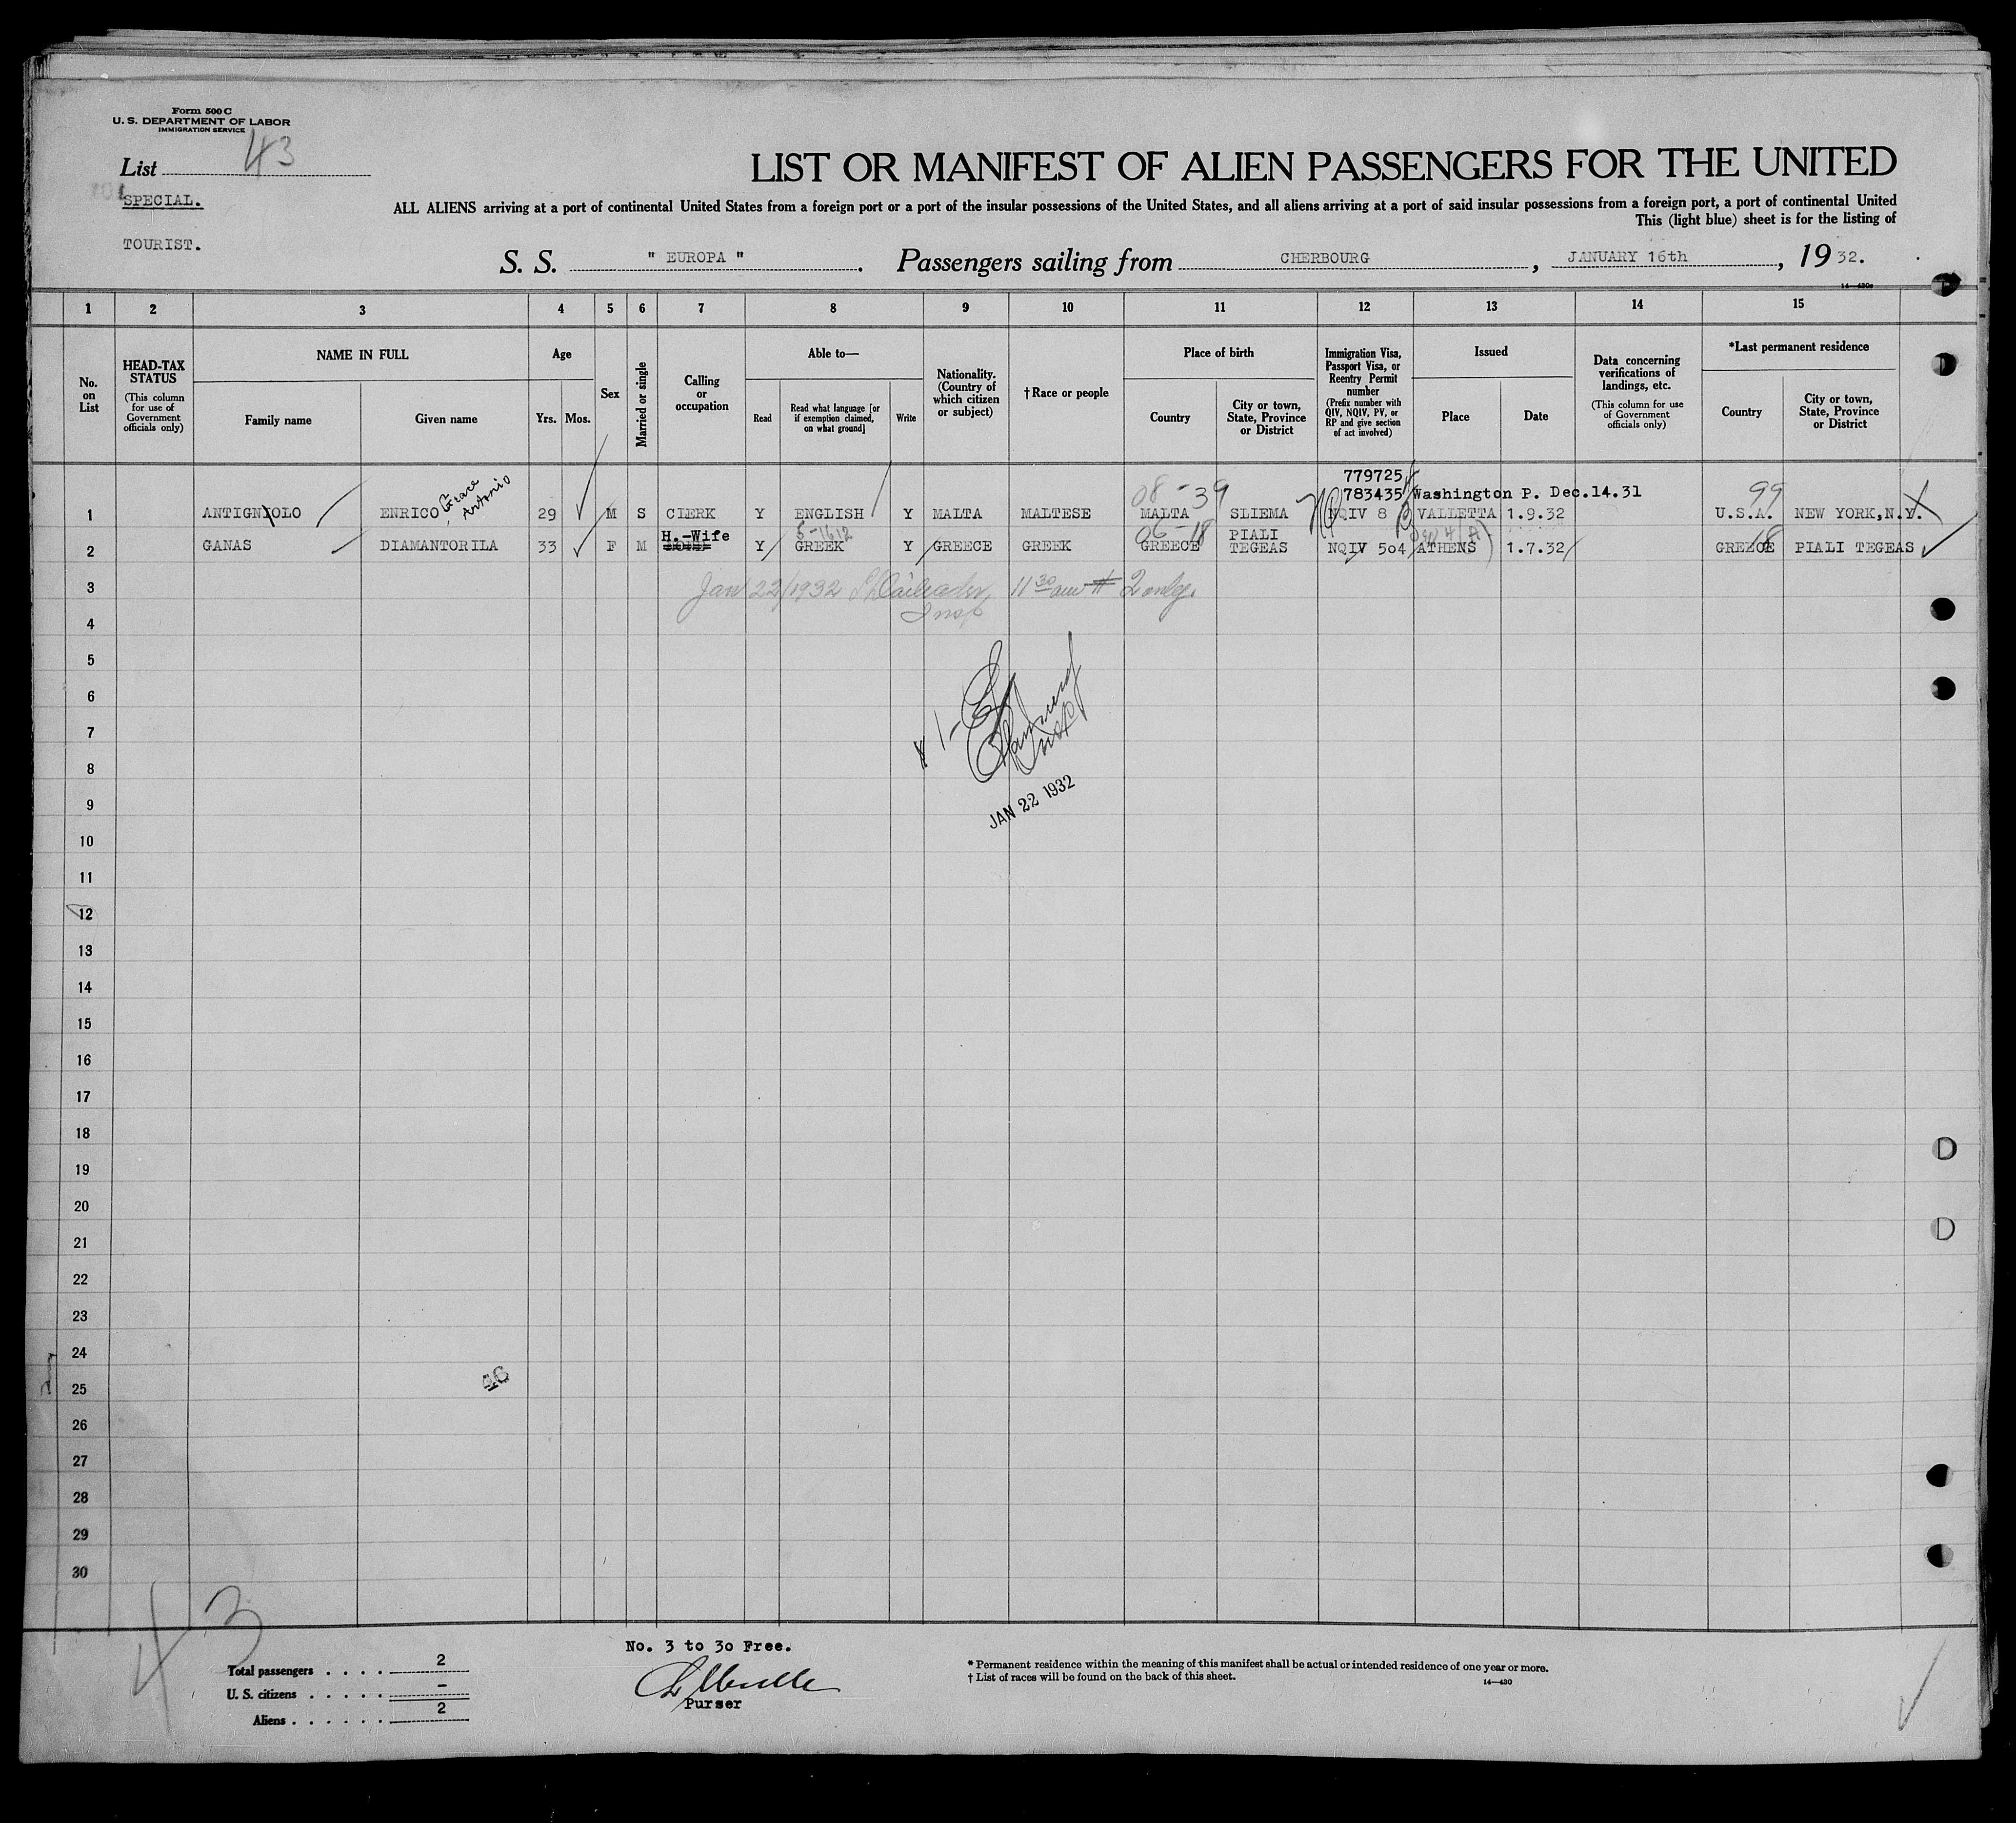 Form 500 C
U. S. DEPARTMENT OF LABOR
IMMIGRATION SERVICE
List 43
SPECIAL.
TOURIST.
LIST OR MANIFEST OF ALIEN PASSENGERS FOR THE UNITED
ALL ALIENS arriving at a port of continental United States from a foreign port or a port of the insular possessions of the United States, and all aliens arriving at a port of said insular possessions from a foreign port, a port of continental United
This (light blue) sheet is for the listing of
S. S. " EUROPA ". Passengers sailing from CHERBOURG, JANUARY 16th, 19 32.
14—430c
1 2 3 4 5 6 7 8 9 10 11 12 13 14 15
No. on List
HEAD-TAX STATUS
(This column for use of Government officials only)
NAME IN FULL
Family name
Given name
Age
Yrs. Mos.
Sex
Married or single
Calling or occupation
Able to—
Read
Read what language [or if exemption claimed, on what ground]
Write
Nationality. (Country of which citizen or subject)
† Race or people
Place of birth
Country
City or town, State, Province or District
Immigration Visa, Passport Visa, or Reentry Permit number
(Prefix number with QIV, NQIV, PV, or RP and give section of act involved)
Issued
Place
Date
Data concerning verifications of landings, etc.
(This column for use of Government officials only)
*Last permanent residence
Country
City or town, State, Province or District
779725
Grace Antonio 08-39 783435 Washington P. Dec.14.31 99
1 ANTIGNIOLO ENRICO 29 M S CLERK Y ENGLISH Y MALTA MALTESE MALTA SLIEMA NQIV 8 VALLETTA 1.9.32 U.S.A. NEW YORK,N.Y.
H.-Wife 5-1612 06-18 PIALI 18
2 GANAS DIAMANTORILA 33 F M Y GREEK Y GREECE GREEK GREECE TEGEAS NQIV 504 ATHENS 1.7.32 GREECE PIALI TEGEAS
3 Jan 22/1932 11 30 am # 2 only.
Insp
4
5
6
7
# 1-
Insp
8
9 JAN 22 1932
10
11
12
13
14
15
16
17
18
19
20
21
22
23
24
25 46
26
27
28
29
30
43
No. 3 to 30 Free.
Purser
Total passengers . . . . 2
U. S. citizens . . . . . –
Aliens . . . . . . 2
* Permanent residence within the meaning of this manifest shall be actual or intended residence of one year or more.
† List of races will be found on the back of this sheet.
14—430